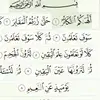 أَلْهَىٰكُمُ ٱلتَّكَاثُرُ ۝ حَتَّىٰ زُرْتُمُ ٱلْمَقَابِرَ ۝
كَلَّا سَوْفَ تَعْلَمُونَ ۝ ثُمَّ كَلَّا سَوْفَ تَعْلَمُونَ ۝
كَلَّا لَوْ تَعْلَمُونَ عِلْمَ ٱلْيَقِينِ ۝ لَتَرَوُنَّ ٱلْجَحِيمَ ۝
ثُمَّ لَتَرَوُنَّهَا عَيْنَ ٱلْيَقِينِ ۝ ثُمَّ لَتُسْـَٔلُنَّ
يَوْمَئِذٍ عَنِ ٱلنَّعِيمِ ۝